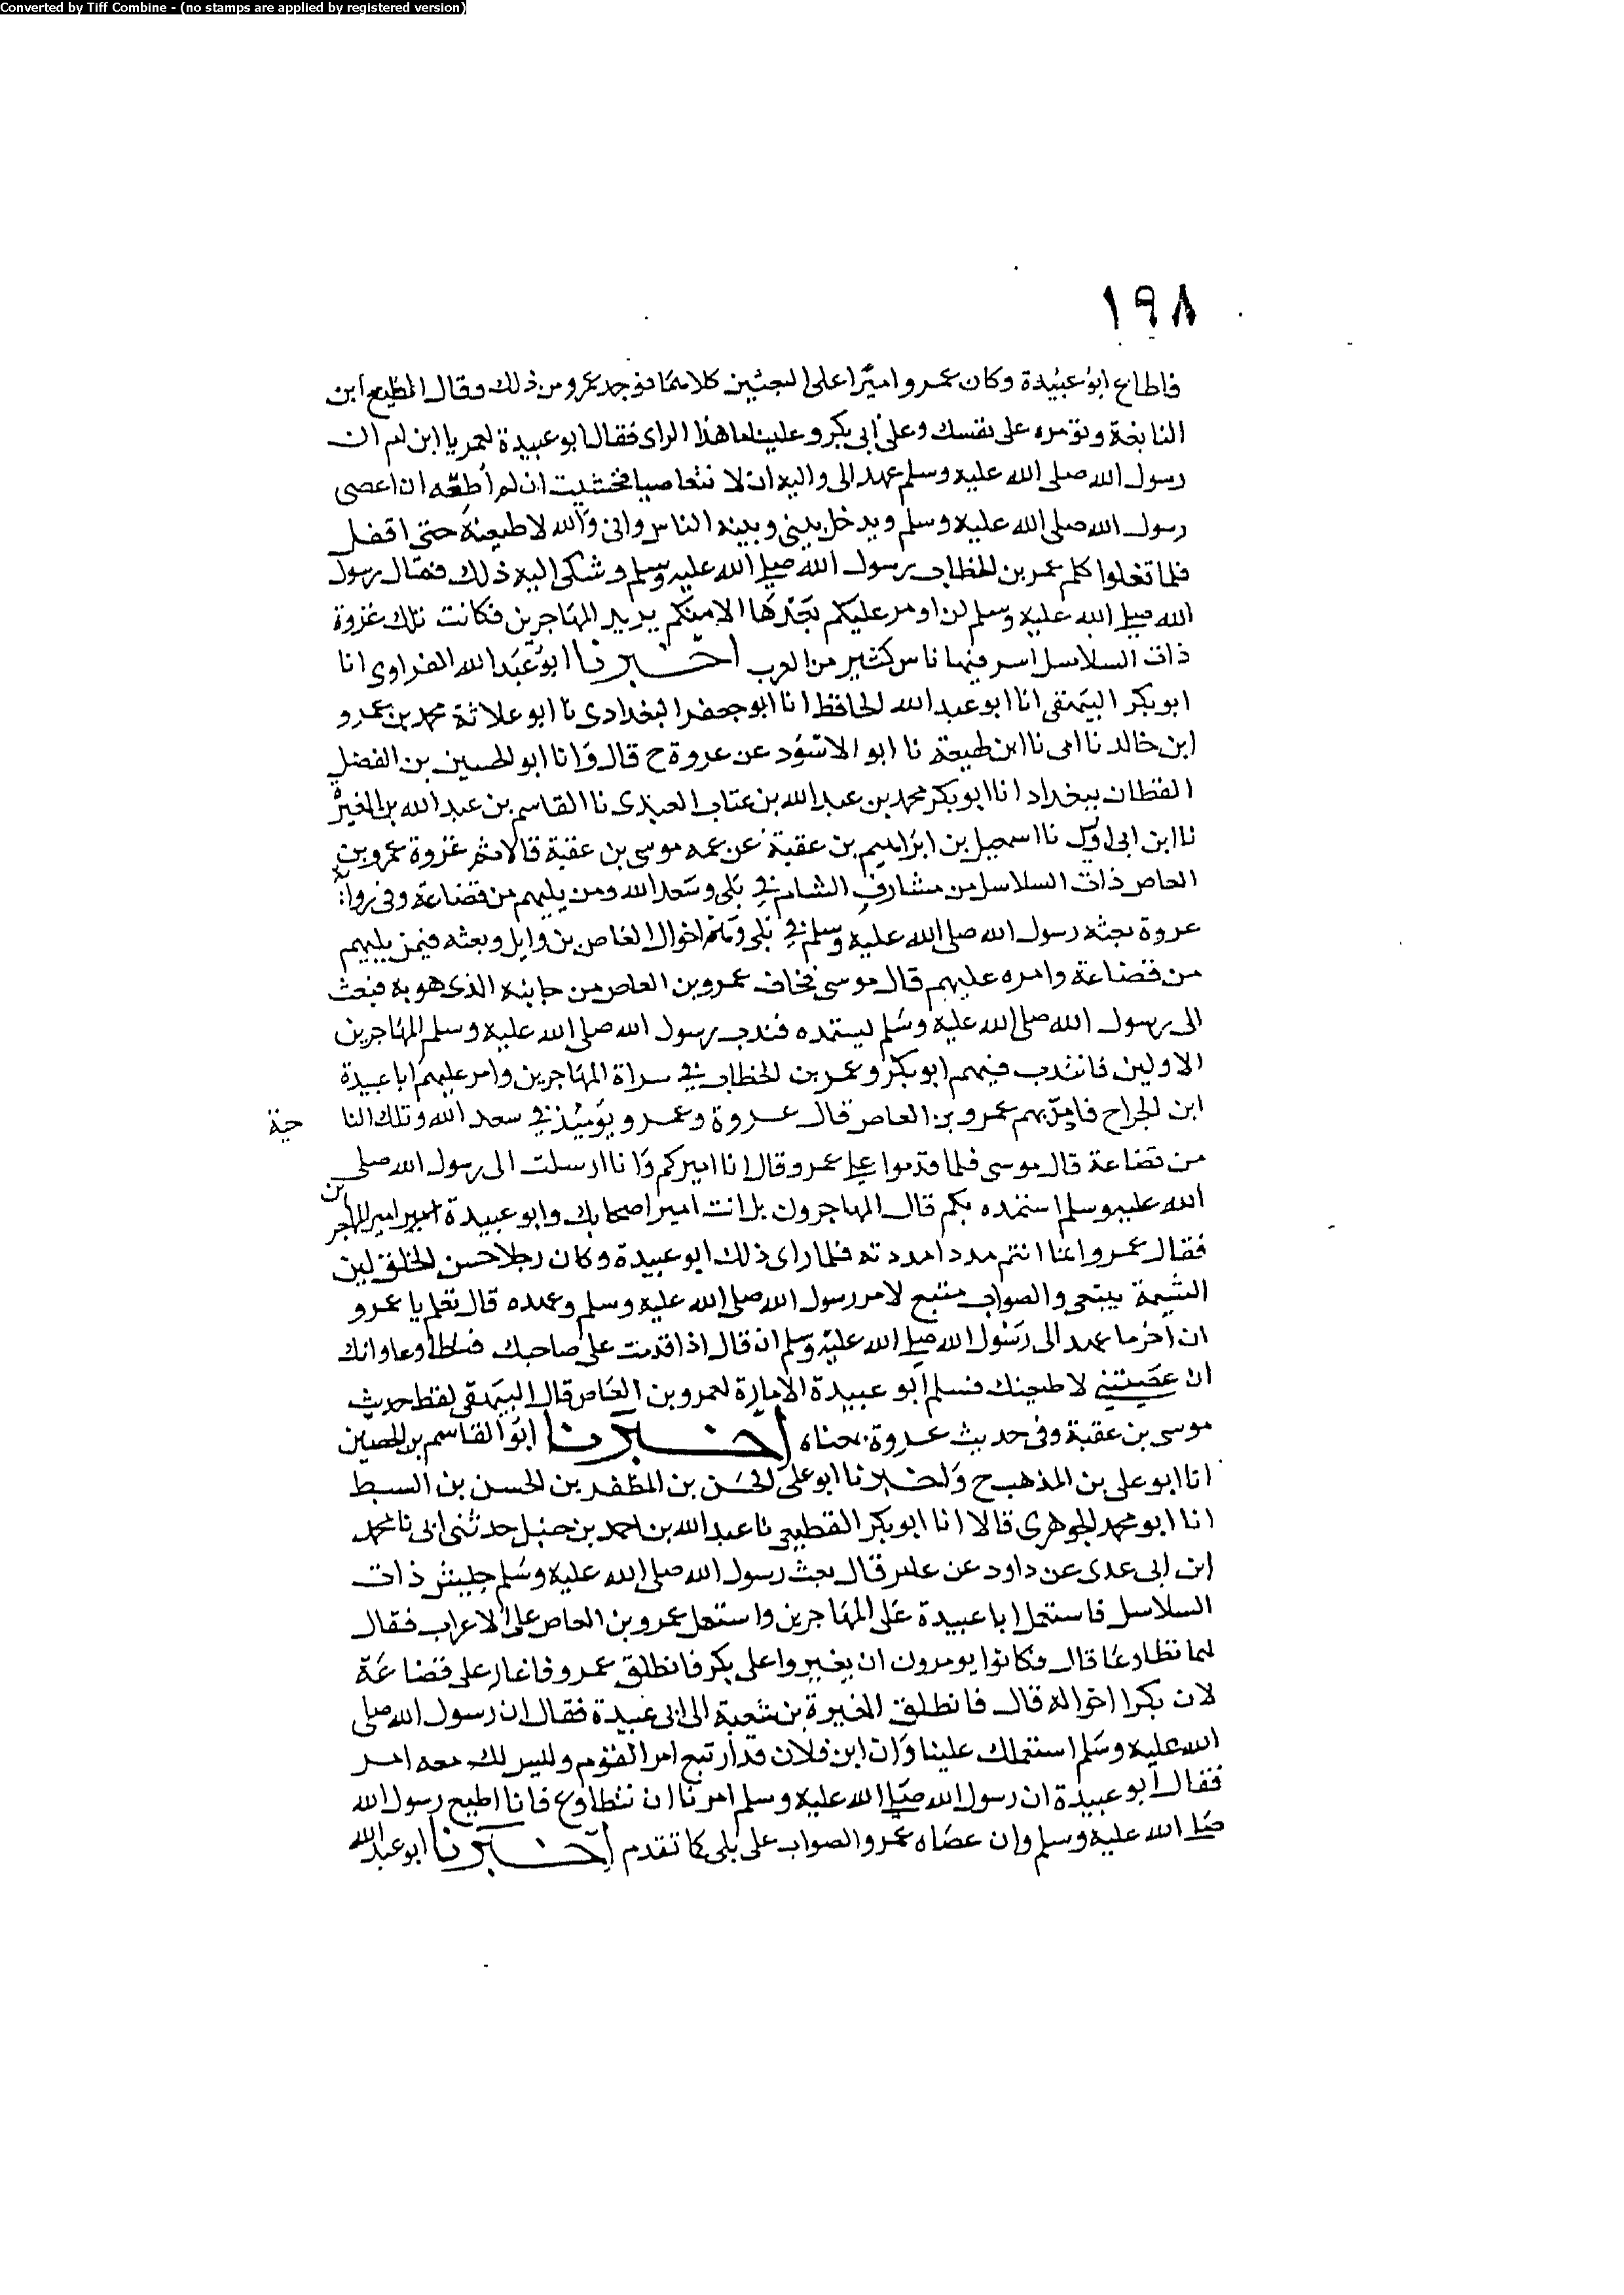 Converted by Tiff Combine - (no stamps are applied by registered version)
١٩٨
فاطاع ابو عبيدة وكان عمرو اميرا على البعثين كلاهما فوجد عمر من ذلك وقال اتطيع ابن
النابغة وتؤمره على نفسك وعلى ابي بكر وعلينا ما هذا الراى فقال ابو عبيدة لعمر يا ابن ام ان
رسول الله صلى الله عليه وسلم عهد الى واليه ان لا نتعاصيا فخشيت ان لم أطعه ان اعصى
رسول الله صلى الله عليه وسلم ويدخل بيني وبينه الناس واني والله لاطيعنه حتى اقفل
فلما قفلوا كلم عمر بن الخطاب رسول الله صلى الله عليه وسلم وشكى اليه ذلك فقال رسول
الله صلى الله عليه وسلم لن اومر عليكم بعدها الا منكم يريد المهاجرين فكانت تلك غزوة
ذات السلاسل اسر فيها ناس كثير من العرب اخبرنا ابو عبد الله الفراوى انا
ابو بكر البيهقى انا ابو عبد الله الحافظ انا ابو جعفر البغدادى نا ابو علاثة محمد بن عمرو
ابن خالد نا ابى نا ابن لهيعة نا ابو الاسود عن عروة ح قال وانا ابو الحسين بن الفضل
القطان ببغداد انا ابو بكر محمد بن عبد الله بن عتاب العبدى نا القاسم بن عبد الله بن المغيرة
نا ابن ابى اويس نا اسمعيل بن ابراهيم بن عقبة عن عمه موسى بن عقبة قالا ثم غزوة عمرو بن
العاص ذات السلاسل من مشارف الشام في بلى وسعد الله ومن يليهم من قضاعة وفى رواية
عروة بعثه رسول الله صلى الله عليه وسلم في بلى وهم اخوال العاص بن وايل وبعثه فيمن يليهم
من قضاعة وامره عليهم قال موسى فخاف عمرو بن العاص من جانبه الذى هو به فبعث
الى رسول الله صلى الله عليه وسلم يستمده فندب رسول الله صلى الله عليه وسلم المهاجرين
الاولين فانتدب فيهم ابو بكر وعمر بن الخطاب في سراة المهاجرين وامر عليهم ابا عبيدة
ابن الجراح فامد بهم عمرو بن العاص قال عروة وعمرو يومئذ في سعد الله وتلك النا حية
من قضاعة قال موسى فلما قدموا على عمرو قال انا اميركم وانا ارسلت الى رسول الله صلى
الله عليه وسلم استمده بكم قال المهاجرون بل انت امير اصحابك وابو عبيدة امير المهاجرين
فقال عمرو انما انتم مدد امددته فلما راى ذلك ابو عبيدة وكان رجلا حسن الخلق لين
الشيمة يبتغى والصواب متبع لامر رسول الله صلى الله عليه وسلم وعهده قال تعلم يا عمرو
ان اخر ما عهد الى رسول الله صلى الله عليه وسلم ان قال اذا قدمت على صاحبك فتطاوعا وانك
ان عصيتني لاطيعنك فسلم ابو عبيدة الامارة لعمرو بن العاص قال البيهقى لفظ حديث
موسى بن عقبة وفى حديث عروة بمعناه اخبرنا ابو القاسم بن الحصين
انا ابو على بن المذهب ح واخبرنا ابو على الحسن بن المظفر بن الحسن بن السبط
انا ابو محمد الجوهرى قالا انا ابو بكر القطيعى نا عبد الله بن احمد بن حنبل حدثنى ابى نا محمد
ابن ابى عدى عن داود عن عامر قال بعث رسول الله صلى الله عليه وسلم جيش ذات
السلاسل فاستعمل ابا عبيدة على المهاجرين واستعمل عمرو بن العاص على الاعراب فقال
لهما تطاوعا قال فكانوا يومرون ان يغيروا على بكر فانطلق عمرو فاغار على قضاعة
لان بكرا اخواله قال فانطلق المغيرة بن شعبة الى ابى عبيدة فقال ان رسول الله صلى
الله عليه وسلم استعملك علينا وان ابن فلان قد ارتبع امر القوم وليس لك معه امر
فقال ابو عبيدة ان رسول الله صلى الله عليه وسلم امرنا ان نتطاوع فانا اطيع رسول الله
صلى الله عليه وسلم وان عصاه عمرو الصواب على بلى كما تقدم اخبرنا ابو عبد الله